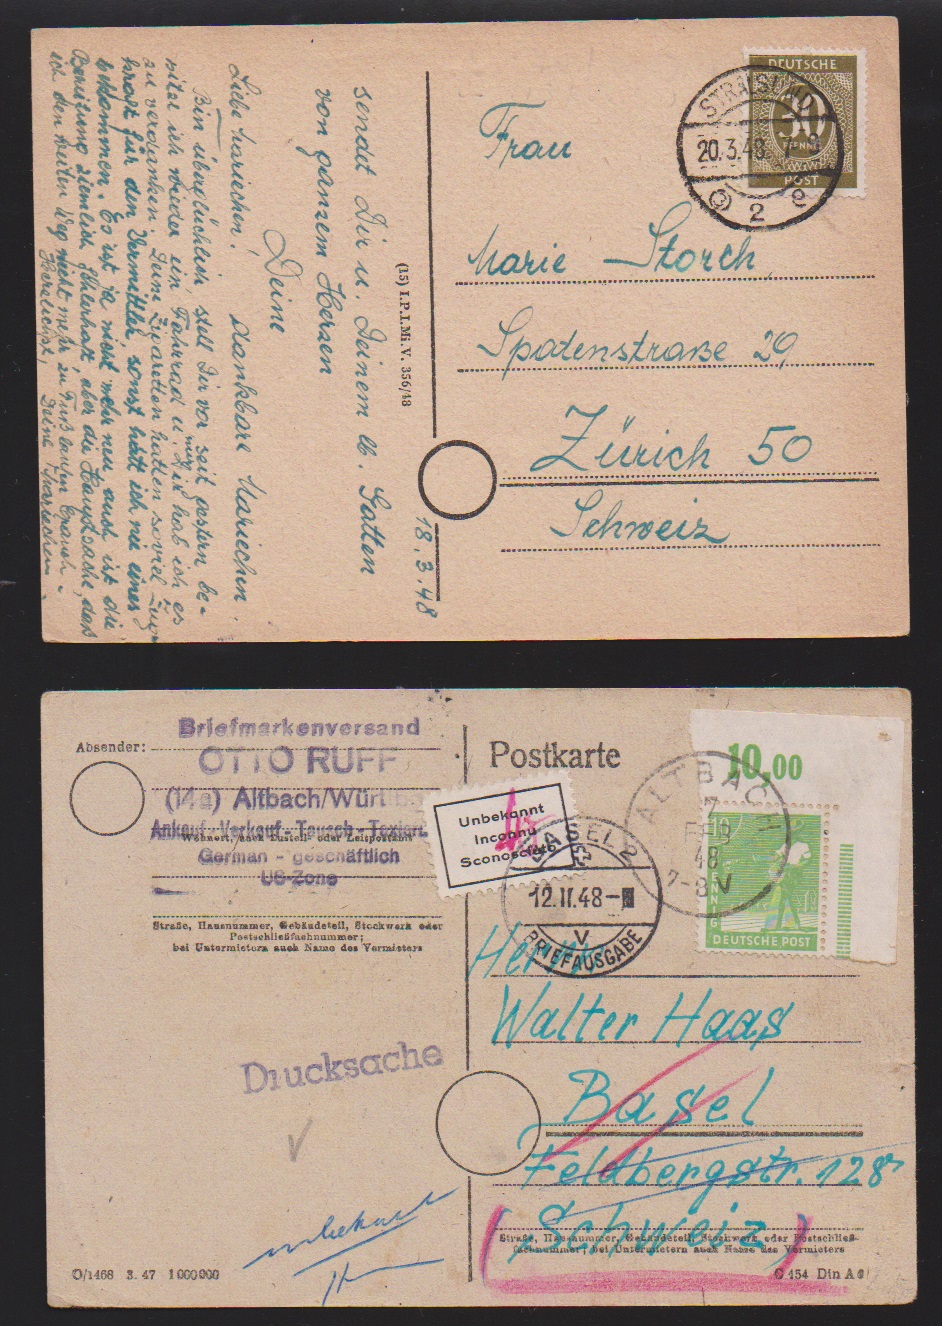 DEUTSCHE
30
PFENNIG
POST
STRALSUND
20.3.48
2 e
Frau
Marie Storch
Spatenstraße 29
Zürich 50
Schweiz
(15) I.P.I.Mi.V. 356/48
18.3.48
sendet Dir u. Deinem lb. Gatten
von ganzem Herzen
Deine
dankbare Mariechen.
Liebe Mariechen!
Bin überglücklich stell Dir vor seit gestern be-
sitze ich wieder ein Fahrrad u. hab ich es
zu verdanken. Deine Zigaretten hatten soviel Zug
kraft für den Vermittler, sonst hätt ich nie eines
bekommen. Es ist ja nicht mehr neu auch ist die
Bereifung ziemlich fehlerhaft aber die Hauptsache, daß
ich den weiten Weg nicht mehr zu Fuß laufen brauch.
Herzlichst, Deine Mariechen
Absender:
Briefmarkenversand
OTTO RUFF
(14a) Altbach/Württbg
Ankauf - Verkauf - Tausch - Taxiert.
Wohnort, auch Zustell- oder Leitpostamt
German - geschäftlich
US-Zone
Straße, Hausnummer, Gebäudeteil, Stockwerk oder
Postschließfachnummer;
bei Untermietern auch Name des Vermieters
Postkarte
Unbekannt
Inconnu
Sconosciuto
BASEL 2
12.II.48-
V
BRIEFAUSGABE
ALTBACH
7
FEB
48
7-8 V
10.00
10
DEUTSCHE POST
Herrn
Walter Haas
Basel
Feldbergstr. 128
Schweiz
Straße, Hausnummer, Gebäudeteil, Stockwerk oder Postschließ-
fachnummer; bei Untermietern auch Name des Vermieters
Drucksache
unbekannt
O/1468 3. 47 1000000
C 154 Din A 6